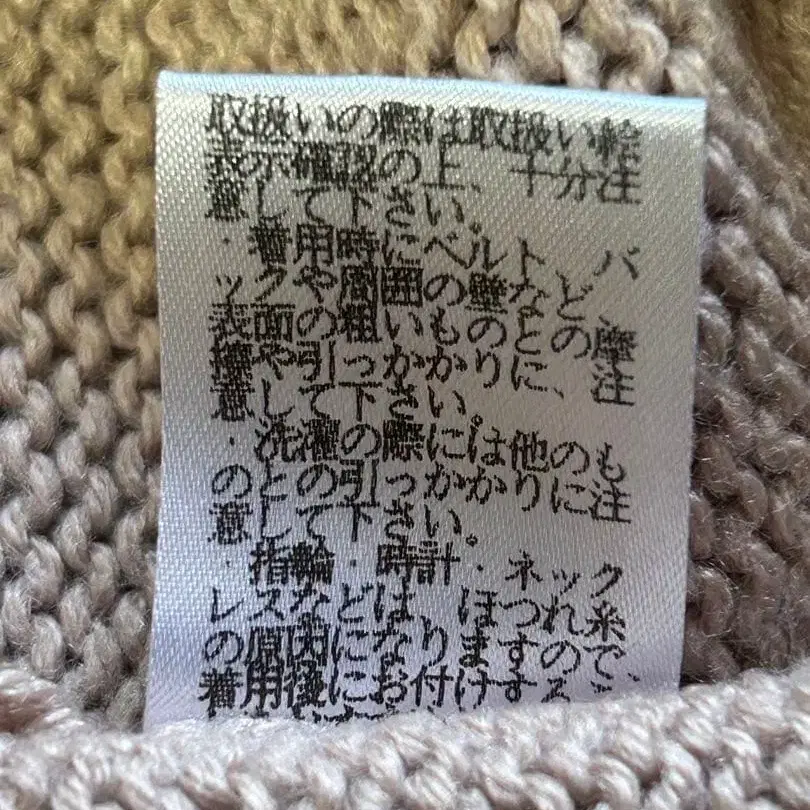 取扱いの際は取扱い絵
表示確認の上、十分注
意して下さい。
・着用時にベルト、バ
ックや周囲の壁などの
表面の粗いものとの摩
擦や引っかかりに、注
意して下さい。
・洗濯の際には他のも
のとの引っかかりに注
意して下さい。
・指輪・時計・ネック
レスなどは、ほつれ糸
の原因になりますので、
着用後にお付けする